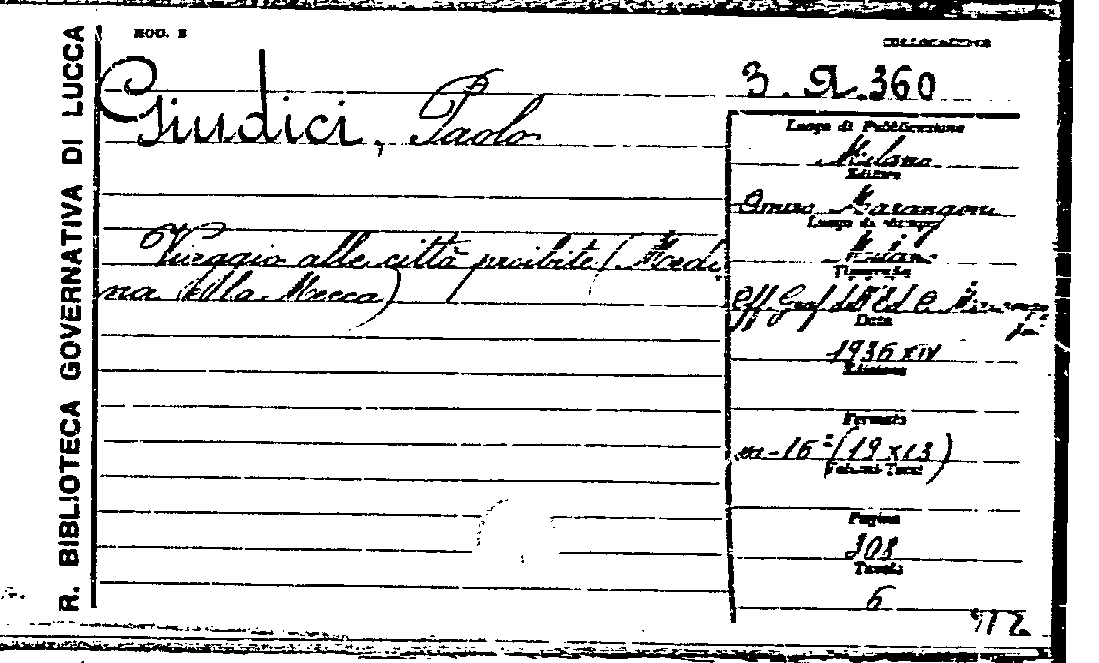 R. BIBLIOTECA GOVERNATIVA DI LUCCA
MOD. E
COLLOCAZIONE
3. Q. 360
Giudici, Paolo
Viaggio alle città proibite (Medi
na e la Mecca)
Luogo di Pubblicazione
Milano
Editore
Amico Marangoni
Luogo di stampa
Milano
Tipografia
Off. Graf. d. Ed. C.
Data
1936 XIV
Edizione
Formato
in-16° (19 x 13)
Volumi-Tomi
Pagine
308
Tavole
6
912